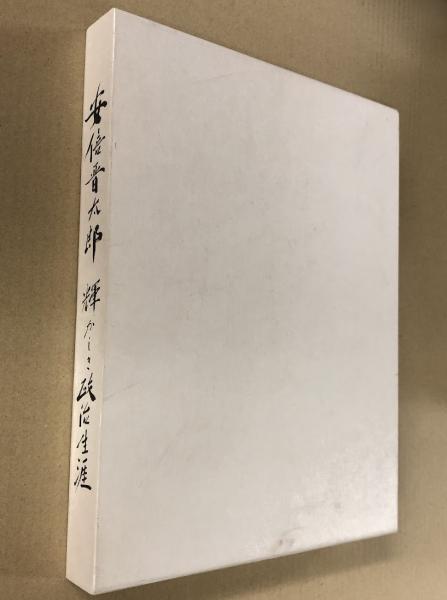 安倍晋太郎 輝かしき政治生涯